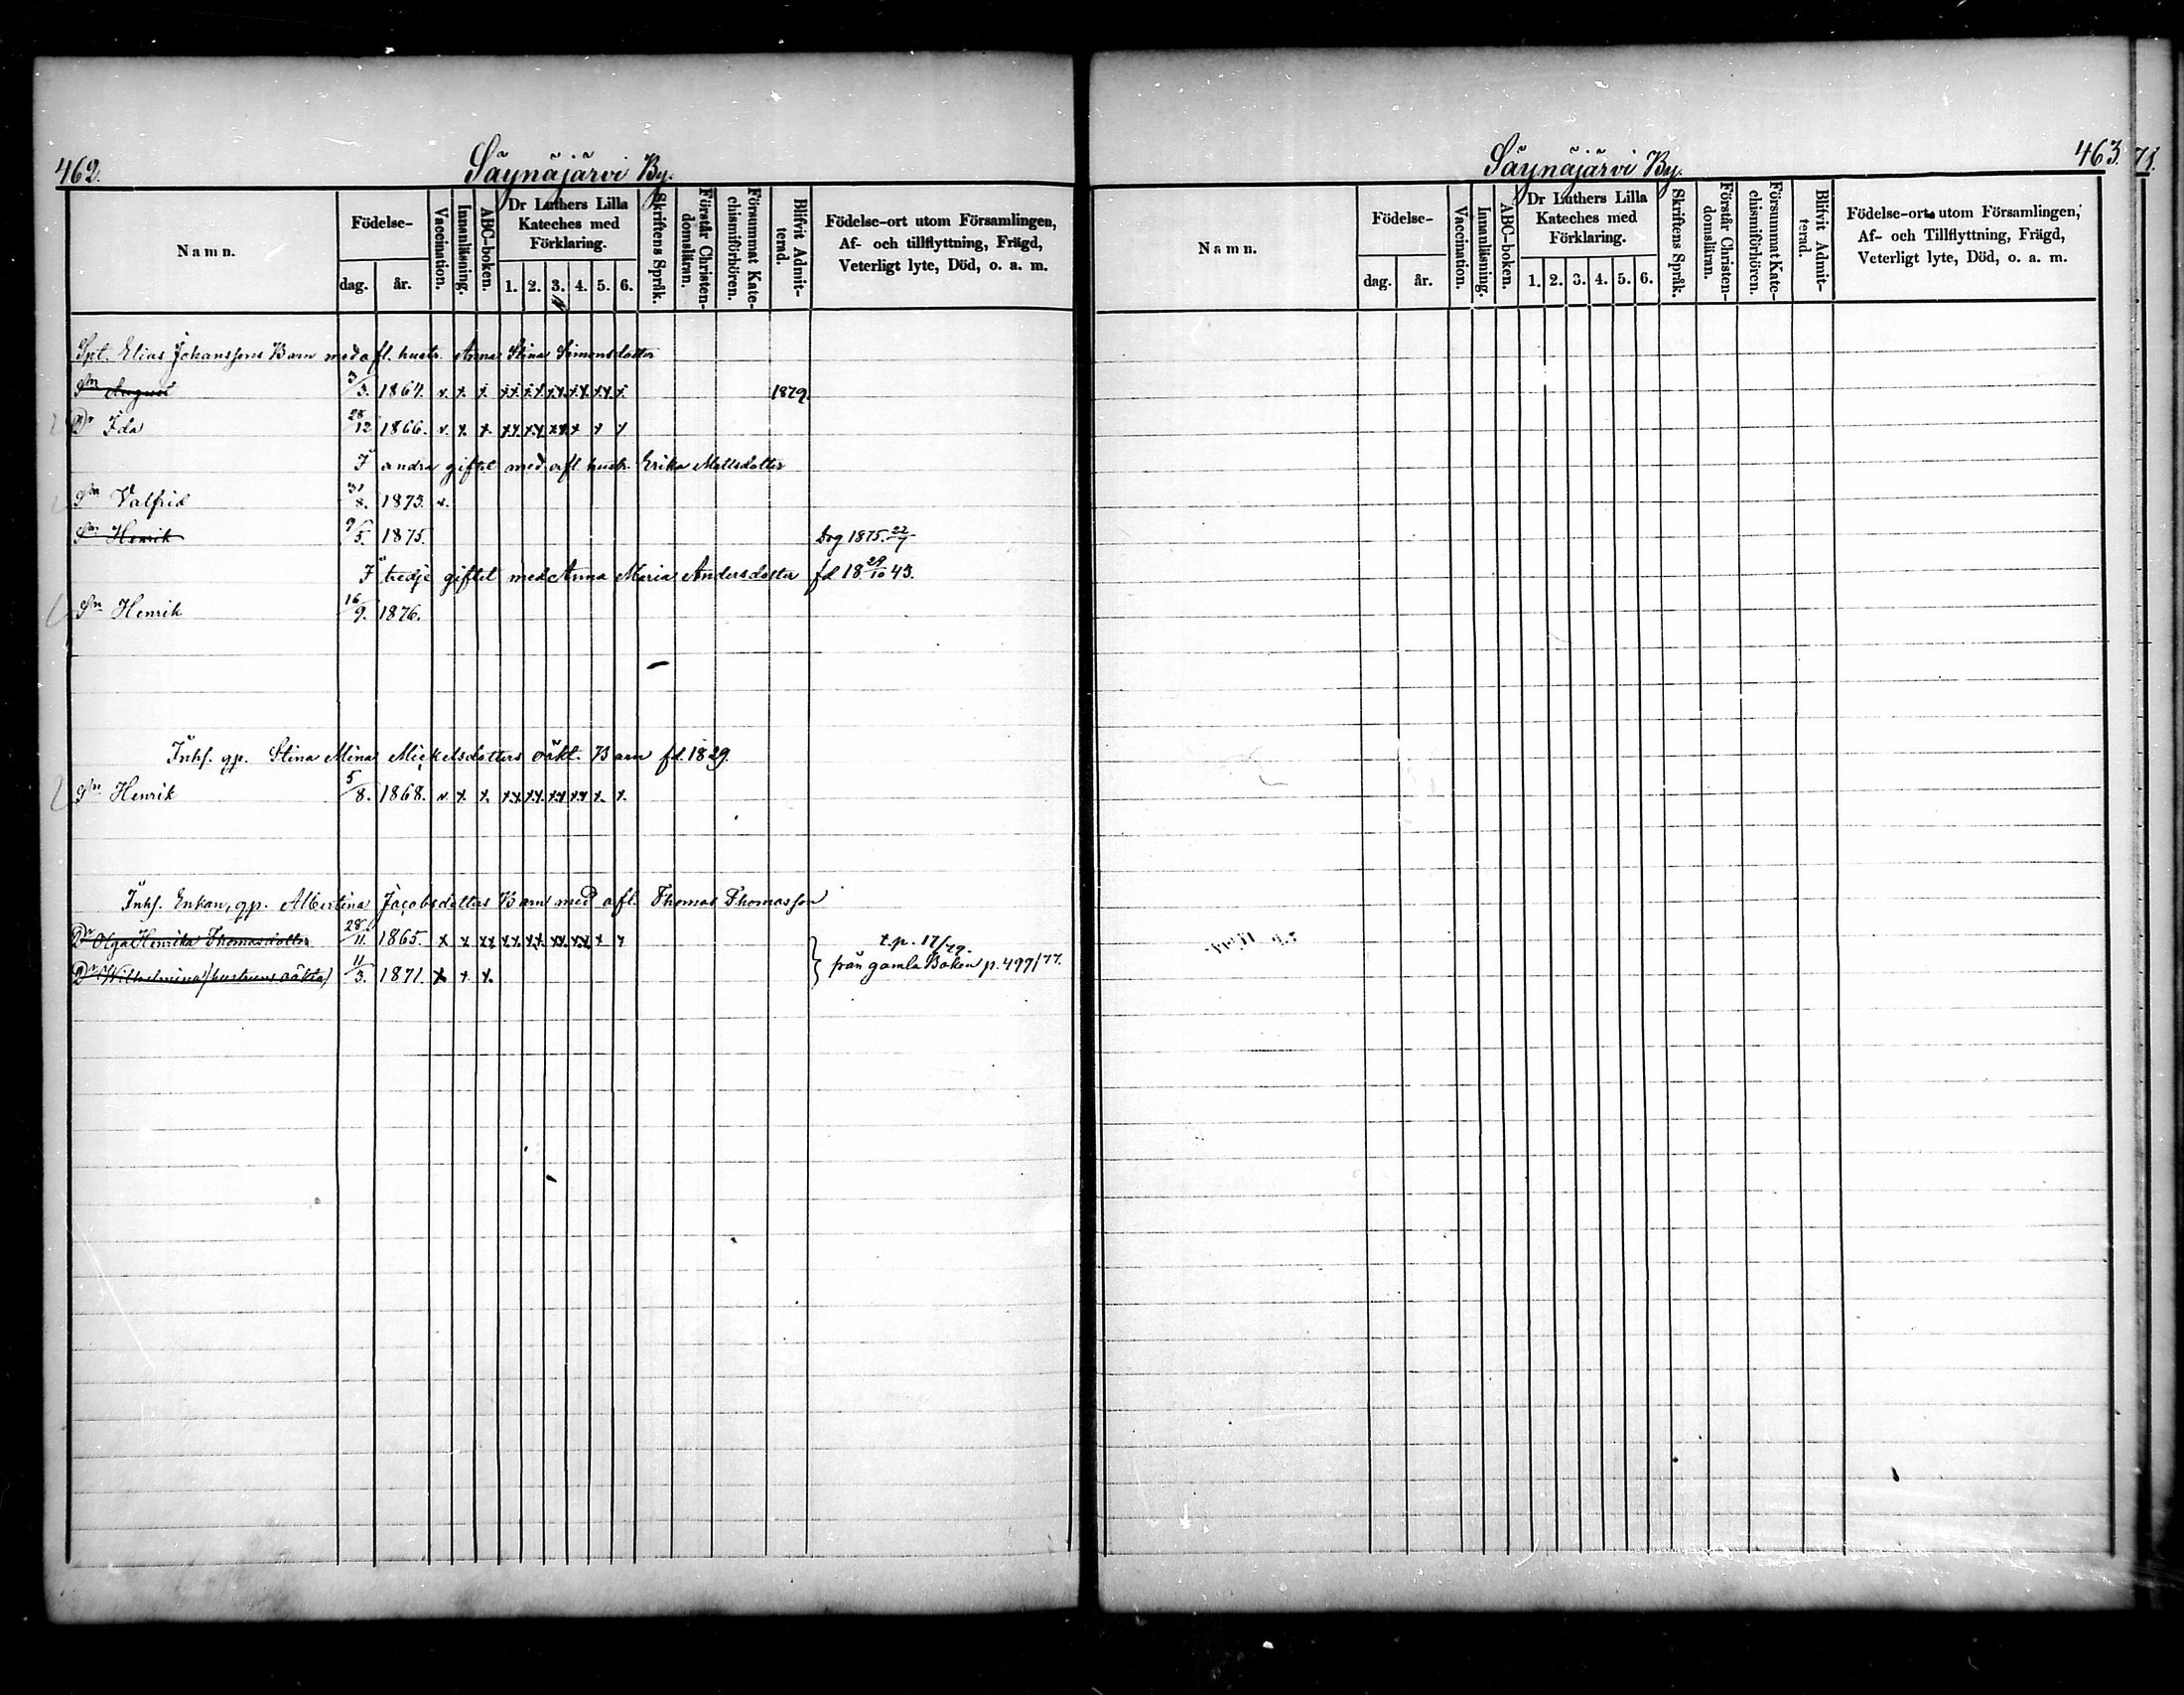 462.
Säynäjärvi By.
Namn.
Födelse-
dag.
år.
Vaccination.
Innanläsning.
ABC-boken.
Dr Luthers Lilla
Kateches med
Förklaring.
1. 2. 3. 4. 5. 6.
Skriftens Språk.
Förstår Christen-
domsläran.
Försummat Kate-
chismiförhören.
Blifvit Admit-
terad.
Födelse-ort utom Församlingen,
Af- och tillflyttning, Frägd,
Veterligt lyte, Död, o. a. m.
Spl. Elias Johanssons Barn med afl. hustr. Anna Stina Simonsdotter
Sn August 3/3. 1864. v. x x xx xx xx xx xx x 1879
Dr Ida 28/12 1866. v. x x xx xx xx x x x
I andra giftet med afl. hustr. Erika Mattsdotter
Sn Valfrid 31/8. 1873. v.
Sn Henrik 9/5. 1875. Dog 1875. 22/7
I tredje giftet med Anna Maria Andersdotter fd 18 29/10 43.
Sn Henrik 16/9. 1876.
Inhs. gp. Stina Mina Mickelsdotters oäkt. Barn fd. 1829.
Sn Henrik 5/8. 1868. v. x x xx xx xx xx x x
Inhs. Enkan, gp. Albertina Jacobsdotters Barn med afl. Thomas Thomasson
Dr Olga Henrika Thomasdotter 28/11 1865. x x xx xx xx xx xx x x t.p. 17/79.
Dr Wilhelmina (hustruns oäkta) 11/3. 1871. x x x från gamla Boken p. 497/77.
463.
Säynäjärvi By.
Namn.
Födelse-
dag.
år.
Vaccination.
Innanläsning.
ABC-boken.
Dr Luthers Lilla
Kateches med
Förklaring.
1. 2. 3. 4. 5. 6.
Skriftens Språk.
Förstår Christen-
domsläran.
Försummat Kate-
chismiförhören.
Blifvit Admit-
terad.
Födelse-ort utom Församlingen,
Af- och Tillflyttning, Frägd,
Veterligt lyte, Död, o. a. m.